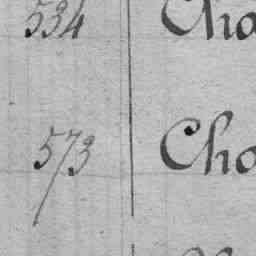 534 Cha
573 Cho